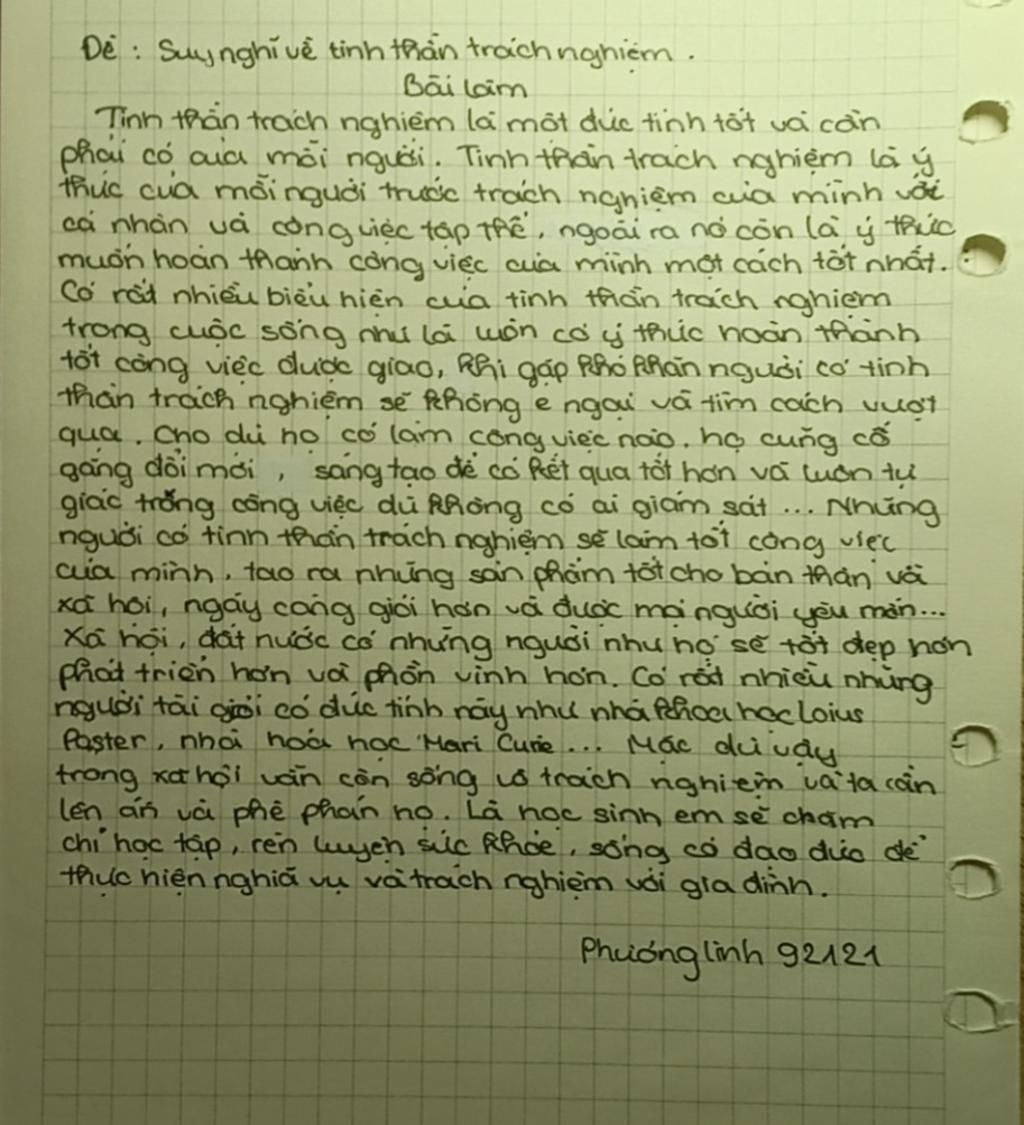 Đề : Suy nghĩ về tinh thần trách nghiệm .
Bài làm
Tinh thần trách nghiệm là một đức tính tốt và cần
phải có của mỗi người. Tinh thần trách nghiệm là ý
thức của mỗi người trước trách nghiệm của mình với
cá nhân và công việc tập thể, ngoài ra nó còn là ý thức
muốn hoàn thành công việc của mình một cách tốt nhất.
Có rất nhiều biểu hiện của tinh thần trách nghiệm
trong cuộc sống như là luôn có ý thức hoàn thành
tốt công việc được giao, khi gặp khó khăn người có tinh
thần trách nghiệm sẽ không e ngại và tìm cách vượt
qua. Cho dù họ có làm công việc nào, họ cũng cố
gắng đổi mới , sáng tạo để có kết quả tốt hơn và luôn tự
giác trong công việc dù không có ai giám sát ... Những
người có tinh thần trách nghiệm sẽ làm tốt công việc
của mình, tạo ra những sản phẩm tốt cho bản thân và
xã hội, ngày càng giỏi hơn và được mọi người yêu mến...
Xã hội, đất nước có những người như họ sẽ tốt đẹp hơn
phát triển hơn và phồn vinh hơn. Có rất nhiều những
người tài giỏi có đức tính này như nhà khoa học Loius
Paster, nhà hoá học Mari Curie ... Mặc dù vậy
trong xã hội vẫn còn sống vô trách nghiệm và ta cần
lên án và phê phán họ. Là học sinh em sẽ chăm
chỉ học tập, rèn luyện sức khỏe, sống có đạo đức để
thực hiện nghĩa vụ và trách nghiệm với gia đình.
Phương Linh 92121